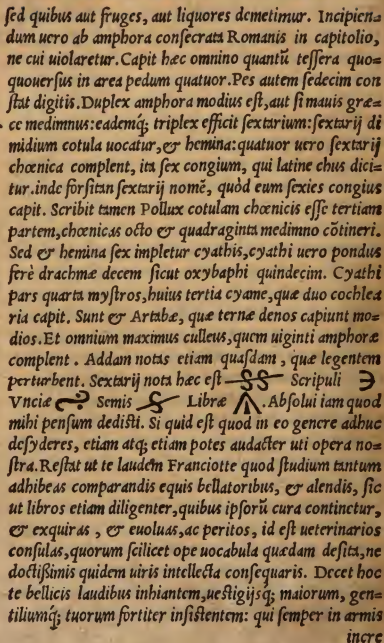 ſed quibus aut fruges, aut liquores demetimur. Incipien⸗
dum uero ab amphora conſecrata Romanis in capitolio,
ne cui uiolaretur. Capit hæc omnino quantũ teſſera quo⸗
quouerſus in area pedum quatuor. Pes autem ſedecim con
ſtat digitis. Duplex amphora modius eſt, aut ſi mauis græ⸗
ce medimnus: eademq; triplex efficit ſextarium: ſextarij di
midium cotula uocatur, & hemina: quatuor uero ſextarij
chœnica complent, ita ſex congium, qui latine chus dici⸗
tur. inde forſitan ſextarij nomẽ, quòd eum ſexies congius
capit. Scribit tamen Pollux cotulam chœnicis eſſe tertiam
partem, chœnicas octo & quadraginta medimno cõtineri.
Sed & hemina ſex impletur cyathis, cyathi uero pondus
ferè drachmæ decem ſicut oxybaphi quindecim. Cyathi
pars quarta myſtros, huius tertia cyame, quæ duo cochlea
ria capit. Sunt & Artabæ, quæ ternæ denos capiunt mo⸗
dios. Et omnium maximus culleus, quem uiginti amphoræ
complent. Addam notas etiam quaſdam, quæ legentem
perturbent. Sextarij nota hæc eſt Scripuli
Vnciæ Semis Libræ . Abſolui iam quod
mihi penſum dediſti. Si quid eſt quod in eo genere adhuc
deſyderes, etiam atq; etiam potes audacter uti opera no⸗
ſtra. Reſtat ut te laudem Franciotte quod ſtudium tantum
adhibeas comparandis equis bellatoribus, & alendis, ſic
ut libros etiam diligenter, quibus ipſorũ cura continetur,
& exquiras, & euoluas, ac peritos, id eſt ueterinarios
conſulas, quorum ſcilicet ope uocabula quædam deſita, ne
doctiſsimis quidem uiris intellecta conſequaris. Decet hoc
te bellicis laudibus inhiantem, ueſtigijsq; maiorum, gen⸗
tiliumq; tuorum fortiter inſiſtentem: qui ſemper in armis
incre